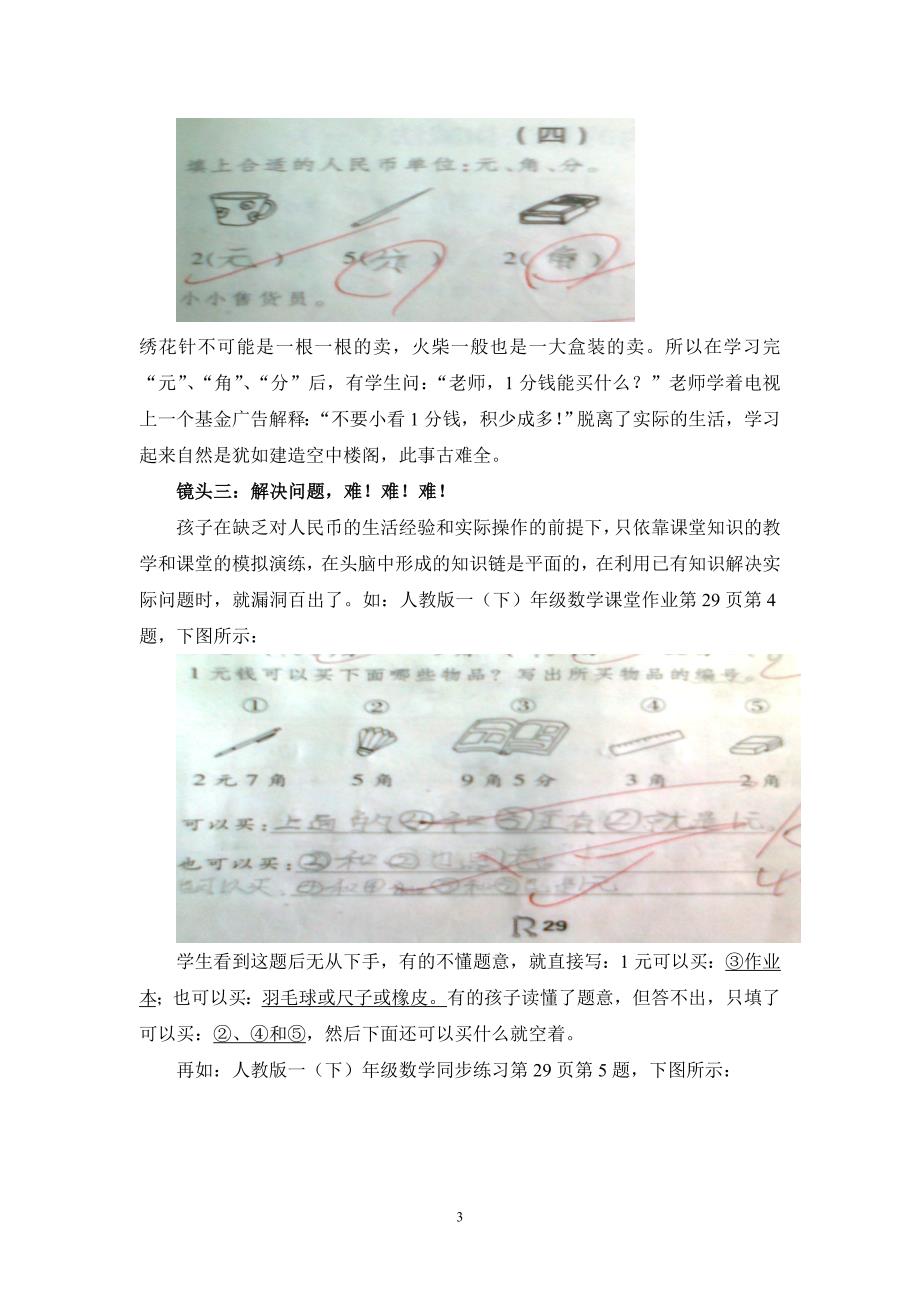 （四）
填上合适的人民币单位：元、角、分。
2（元 ） 5（分 ） 2（角 ）
小小售货员。
绣花针不可能是一根一根的卖，火柴一般也是一大盒装的卖。所以在学习完
“元”、“角”、“分”后，有学生问：“老师，1 分钱能买什么？”老师学着电视
上一个基金广告解释：“不要小看 1 分钱，积少成多！”脱离了实际的生活，学习
起来自然是犹如建造空中楼阁，此事古难全。
镜头三：解决问题，难！难！难！
孩子在缺乏对人民币的生活经验和实际操作的前提下，只依靠课堂知识的教
学和课堂的模拟演练，在头脑中形成的知识链是平面的，在利用已有知识解决实
际问题时，就漏洞百出了。如：人教版一（下）年级数学课堂作业第 29 页第 4
题，下图所示：
1 元钱可以买下面哪些物品？写出所买物品的编号。
① ② ③ ④ ⑤
2 元 7 角 5 角 9 角 5 分 3 角 2 角
可以买：上面的④和⑤还有②就是1元。
也可以买：②和②也是
也可以买：
R 29
学生看到这题后无从下手，有的不懂题意，就直接写：1 元可以买：③作业
本；也可以买：羽毛球或尺子或橡皮。有的孩子读懂了题意，但答不出，只填了
可以买：②、④和⑤，然后下面还可以买什么就空着。
再如：人教版一（下）年级数学同步练习第 29 页第 5 题，下图所示：
3